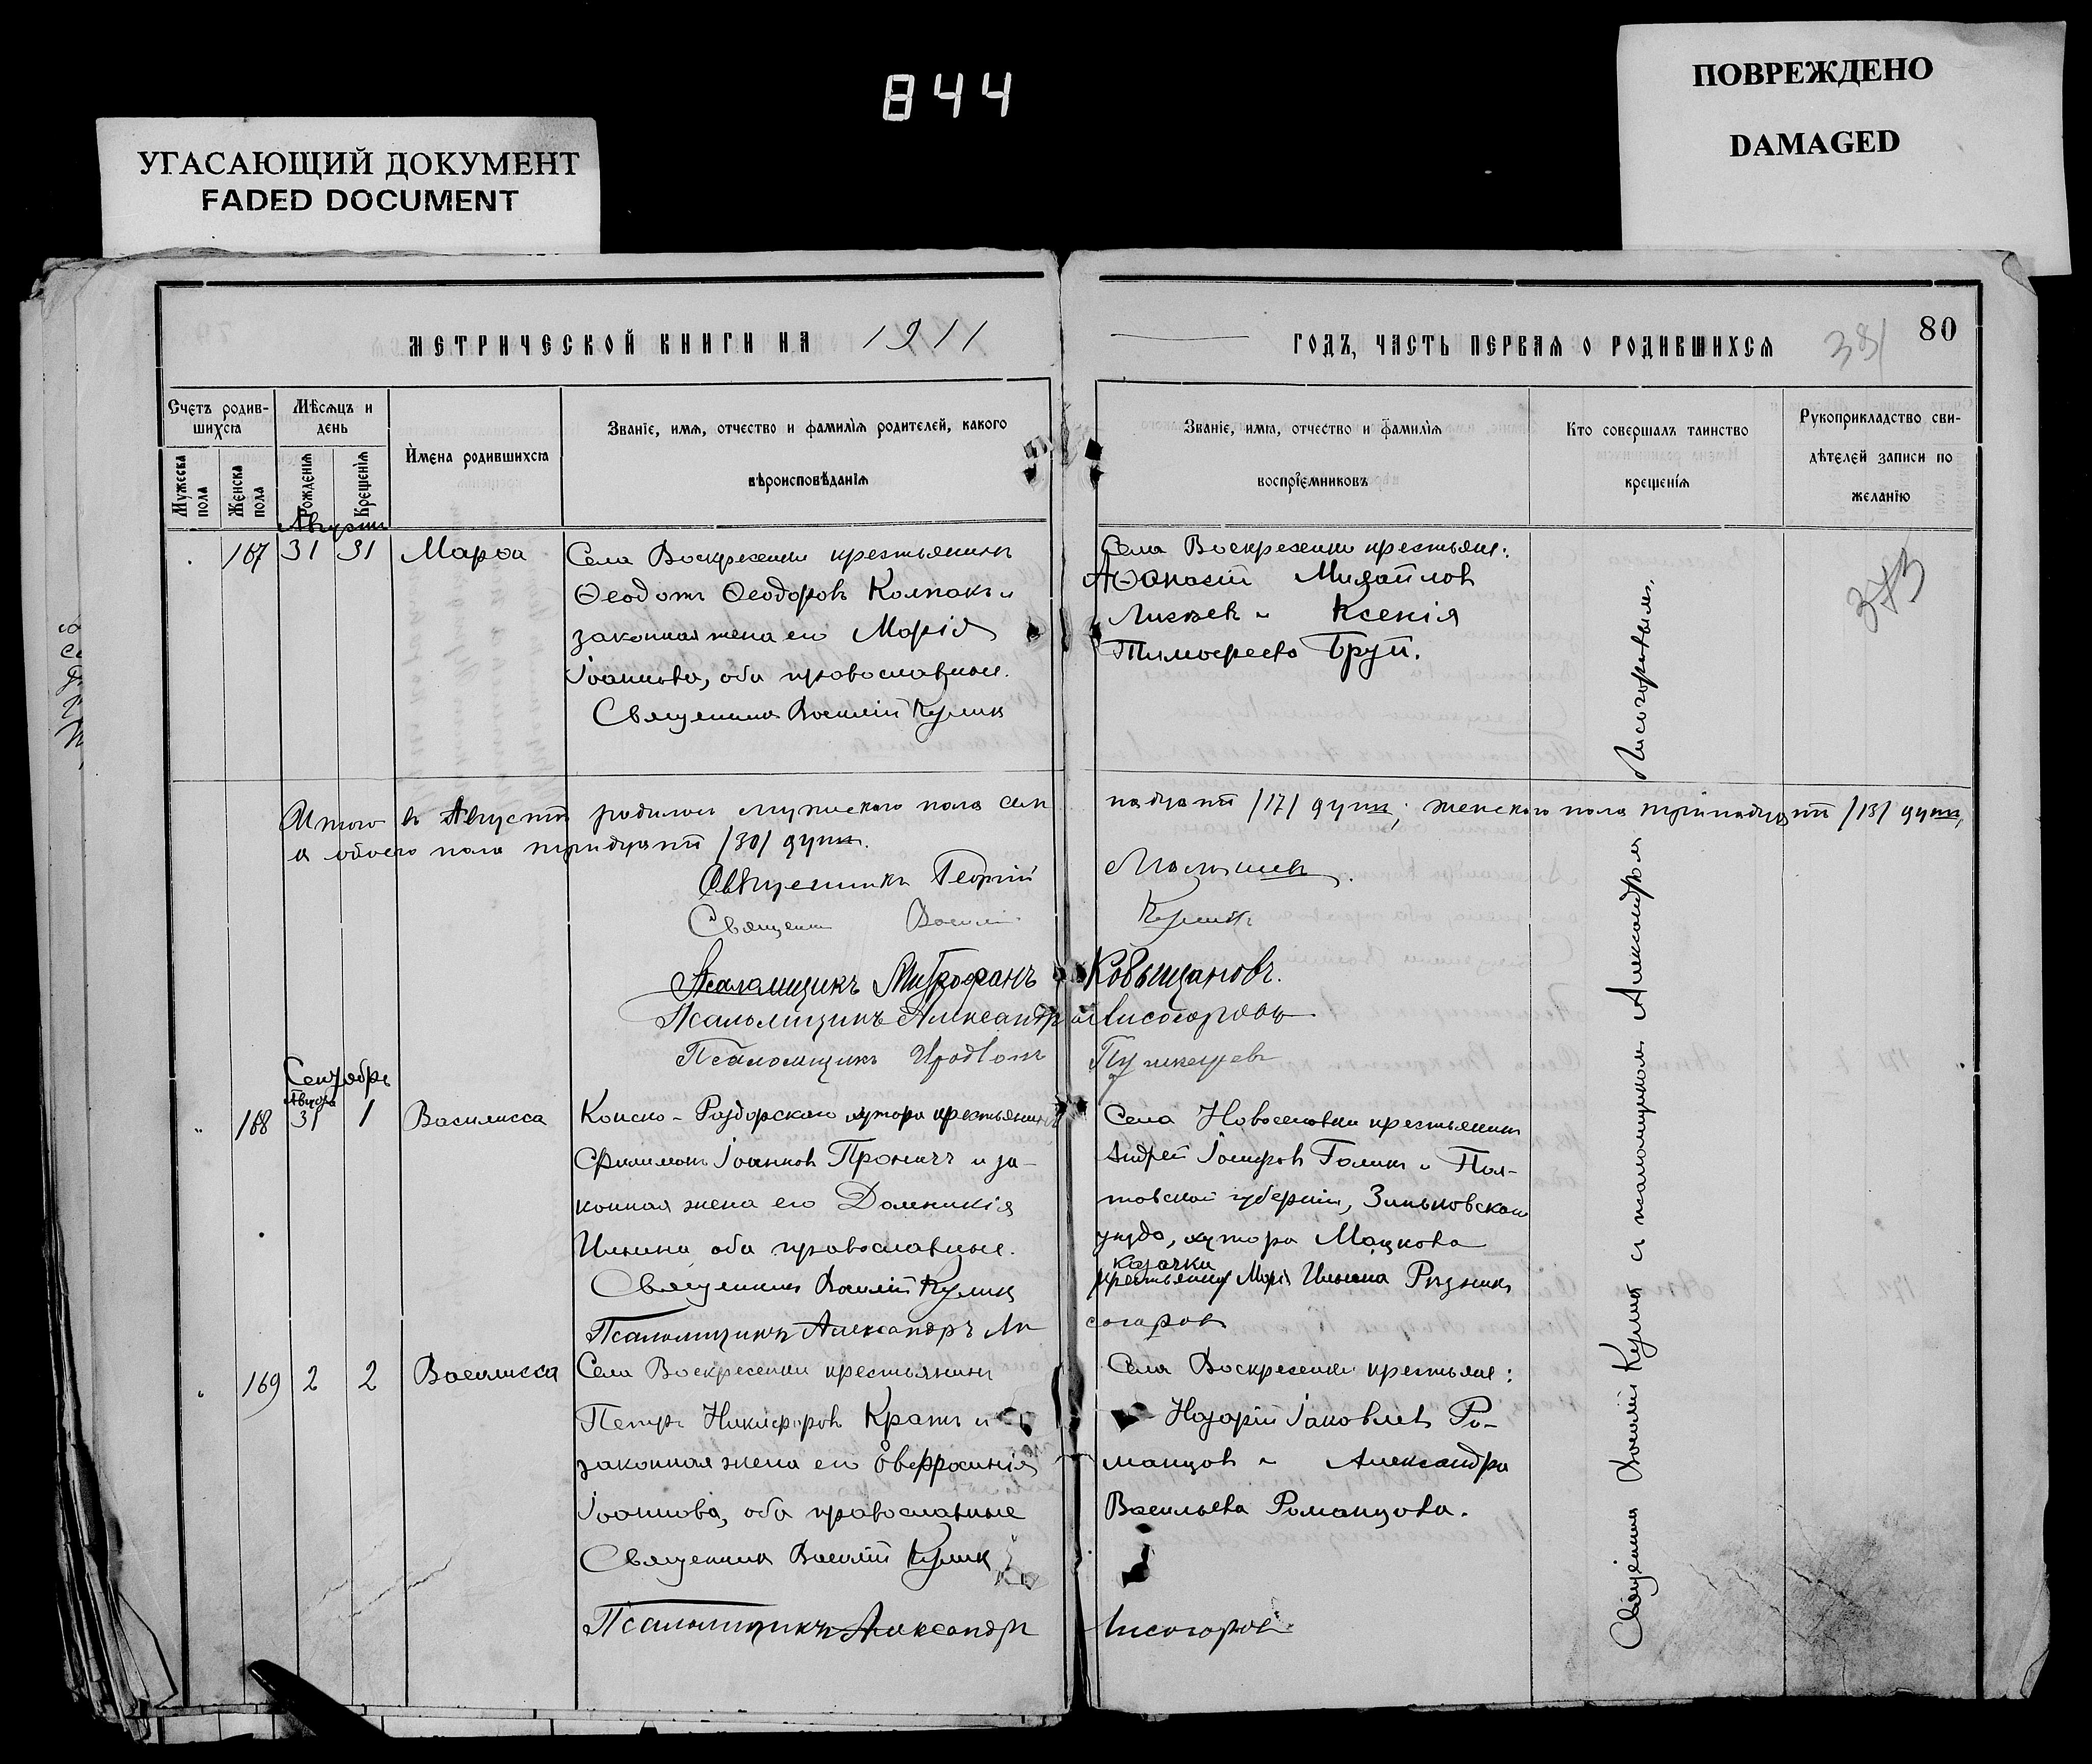 844
УГАСАЮЩИЙ ДОКУМЕНТ
FADED DOCUMENT
ПОВРЕЖДЕНО
DAMAGED
МЕТРИЧЕСКОЙ КНИГИ НА 1911
ГОДЪ, ЧАСТЬ ПЕРВАЯ О РОДИВШИХСЯ
381
80
Счетъ родив-
шихся
Мужеска
пола
Женска
пола
Мѣсяцъ и
день
Рожденія
Крещенія
Имена родившихся
Званіе, имя, отчество и фамилія родителей, какого
вѣроисповѣданія
Званіе, имя, отчество и фамилія
воспріемниковъ
Кто совершалъ таинство
крещенія
Рукоприкладство сви-
дѣтелей записи по
желанію
Августъ
167 31 31 Марѳа
Села Воскресенки крестьянинъ
Ѳеодотъ Ѳеодоровъ Колпакъ и
законная жена его Марія
Іоаннова, оба православные.
Священникъ Василій Кулик
Села Воскресенки крестьяне:
Аѳанасій Михайловъ
и Ксенія
Тимоѳеева Бруй.
373
Итого въ Августѣ родилось мужескаго пола сем
надцать /17/ душъ; женскаго пола тринадцать /13/ душъ,
а обоего пола тридцать /30/ душъ.
Священникъ Георгій
Священник Василій Куликъ
Псаломщикъ Митрофанъ Ковыщановъ.
Псаломщикъ Александръ Лисогоровъ
Псаломщикъ
Сентябрь
Августа
168 31 1 Василисса
Конско-Раздорскаго хутора крестьянинъ
Филимонъ Іоанновъ Пронинъ и за-
конная жена его Домникія
Ильина оба православные.
Священникъ Василій Кулик
Псаломщикъ Александръ Ли
согоровъ
Села Новоселовки крестьянинъ
Андрей Іосифовъ Голикъ и Пол-
тавской губерніи, Зиньковскаго
уѣзда, хутора Мацкова
казачки
Марія Ильина Рѣзникъ
169 2 2 Василисса
Села Воскресенки крестьянинъ
Петръ Никифоровъ Кратъ и
законная жена его Евфросинія
Іоаннова, оба православные
Священник Василій Кулик
Псаломщикъ Александръ Лисогоровъ
Села Воскресенки крестьяне:
Назарій Іаковлевъ Ро-
манцовъ и Александра
Васильева Романцова.
Священник Василій Кулик съ псаломщикомъ Александромъ Лисогоровымъ.